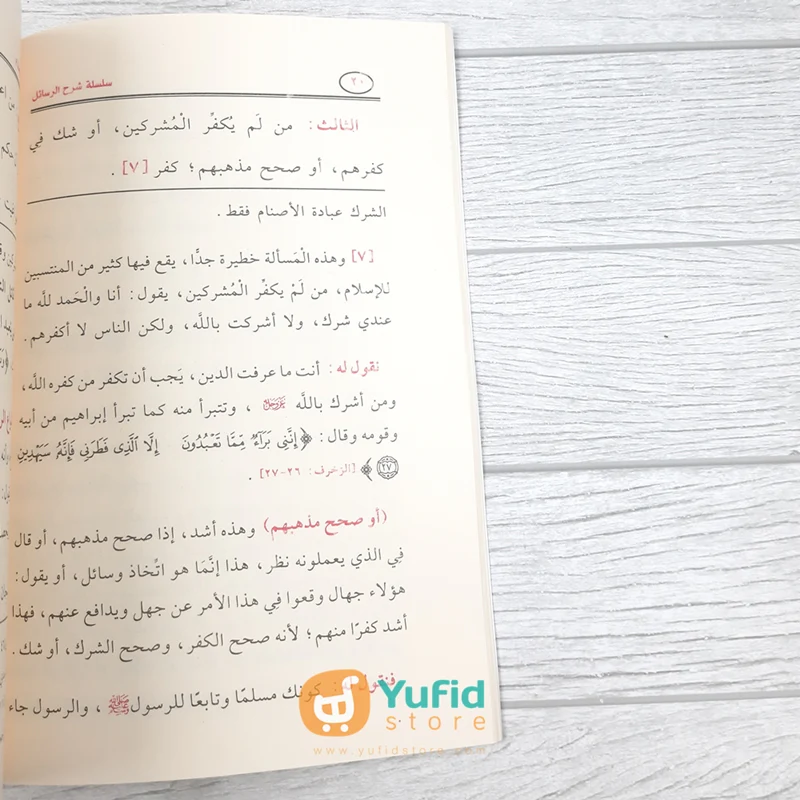 ٢٠ سلسلة شرح الرسائل
الثالث: من لَم يُكفِّر الْمُشركين، أو شك في
كفرهم، أو صحح مذهبهم؛ كفر [٧].
الشرك عبادة الأصنام فقط.
[٧] وهذه الْمَسألة خطيرة جدًّا، يقع فيها كثير من المنتسبين
للإسلام، من لَمْ يكفِّر الْمُشركين، يقول: أنا والْحَمد للَّه ما
عندي شرك، ولا أشركت باللَّه، ولكن الناس لا أكفرهم.
نقول له: أنت ما عرفت الدين، يَجب أن تكفر من كفره اللَّه،
ومن أشرك باللَّه عَزَّوَجَلَّ، وتتبرأ منه كما تبرأ إبراهيم من أبيه
وقومه وقال: ﴿إِنَّنِى بَرَآءٌ مِّمَّا تَعْبُدُونَ إِلَّا ٱلَّذِى فَطَرَنِى فَإِنَّهُۥ سَيَهْدِينِ
٢٧﴾ [الزخرف: ٢٦-٢٧].
(أو صحح مذهبهم) وهذه أشد، إذا صحح مذهبهم، أو قال
فِي الذي يعملونه نظر، هذا إنَّمَا هو اتِّخاذ وسائل، أو يقول:
هؤلاء جهال وقعوا في هذا الأمر عن جهل ويدافع عنهم، فهذا
أشد كفرًا منهم؛ لأنه صحح الكفر، وصحح الشرك، أو شك.
فنقول له: كونك مسلمًا وتابعًا للرسول ﷺ، والرسول جاء
Yufid
store
www.yufidstore.com